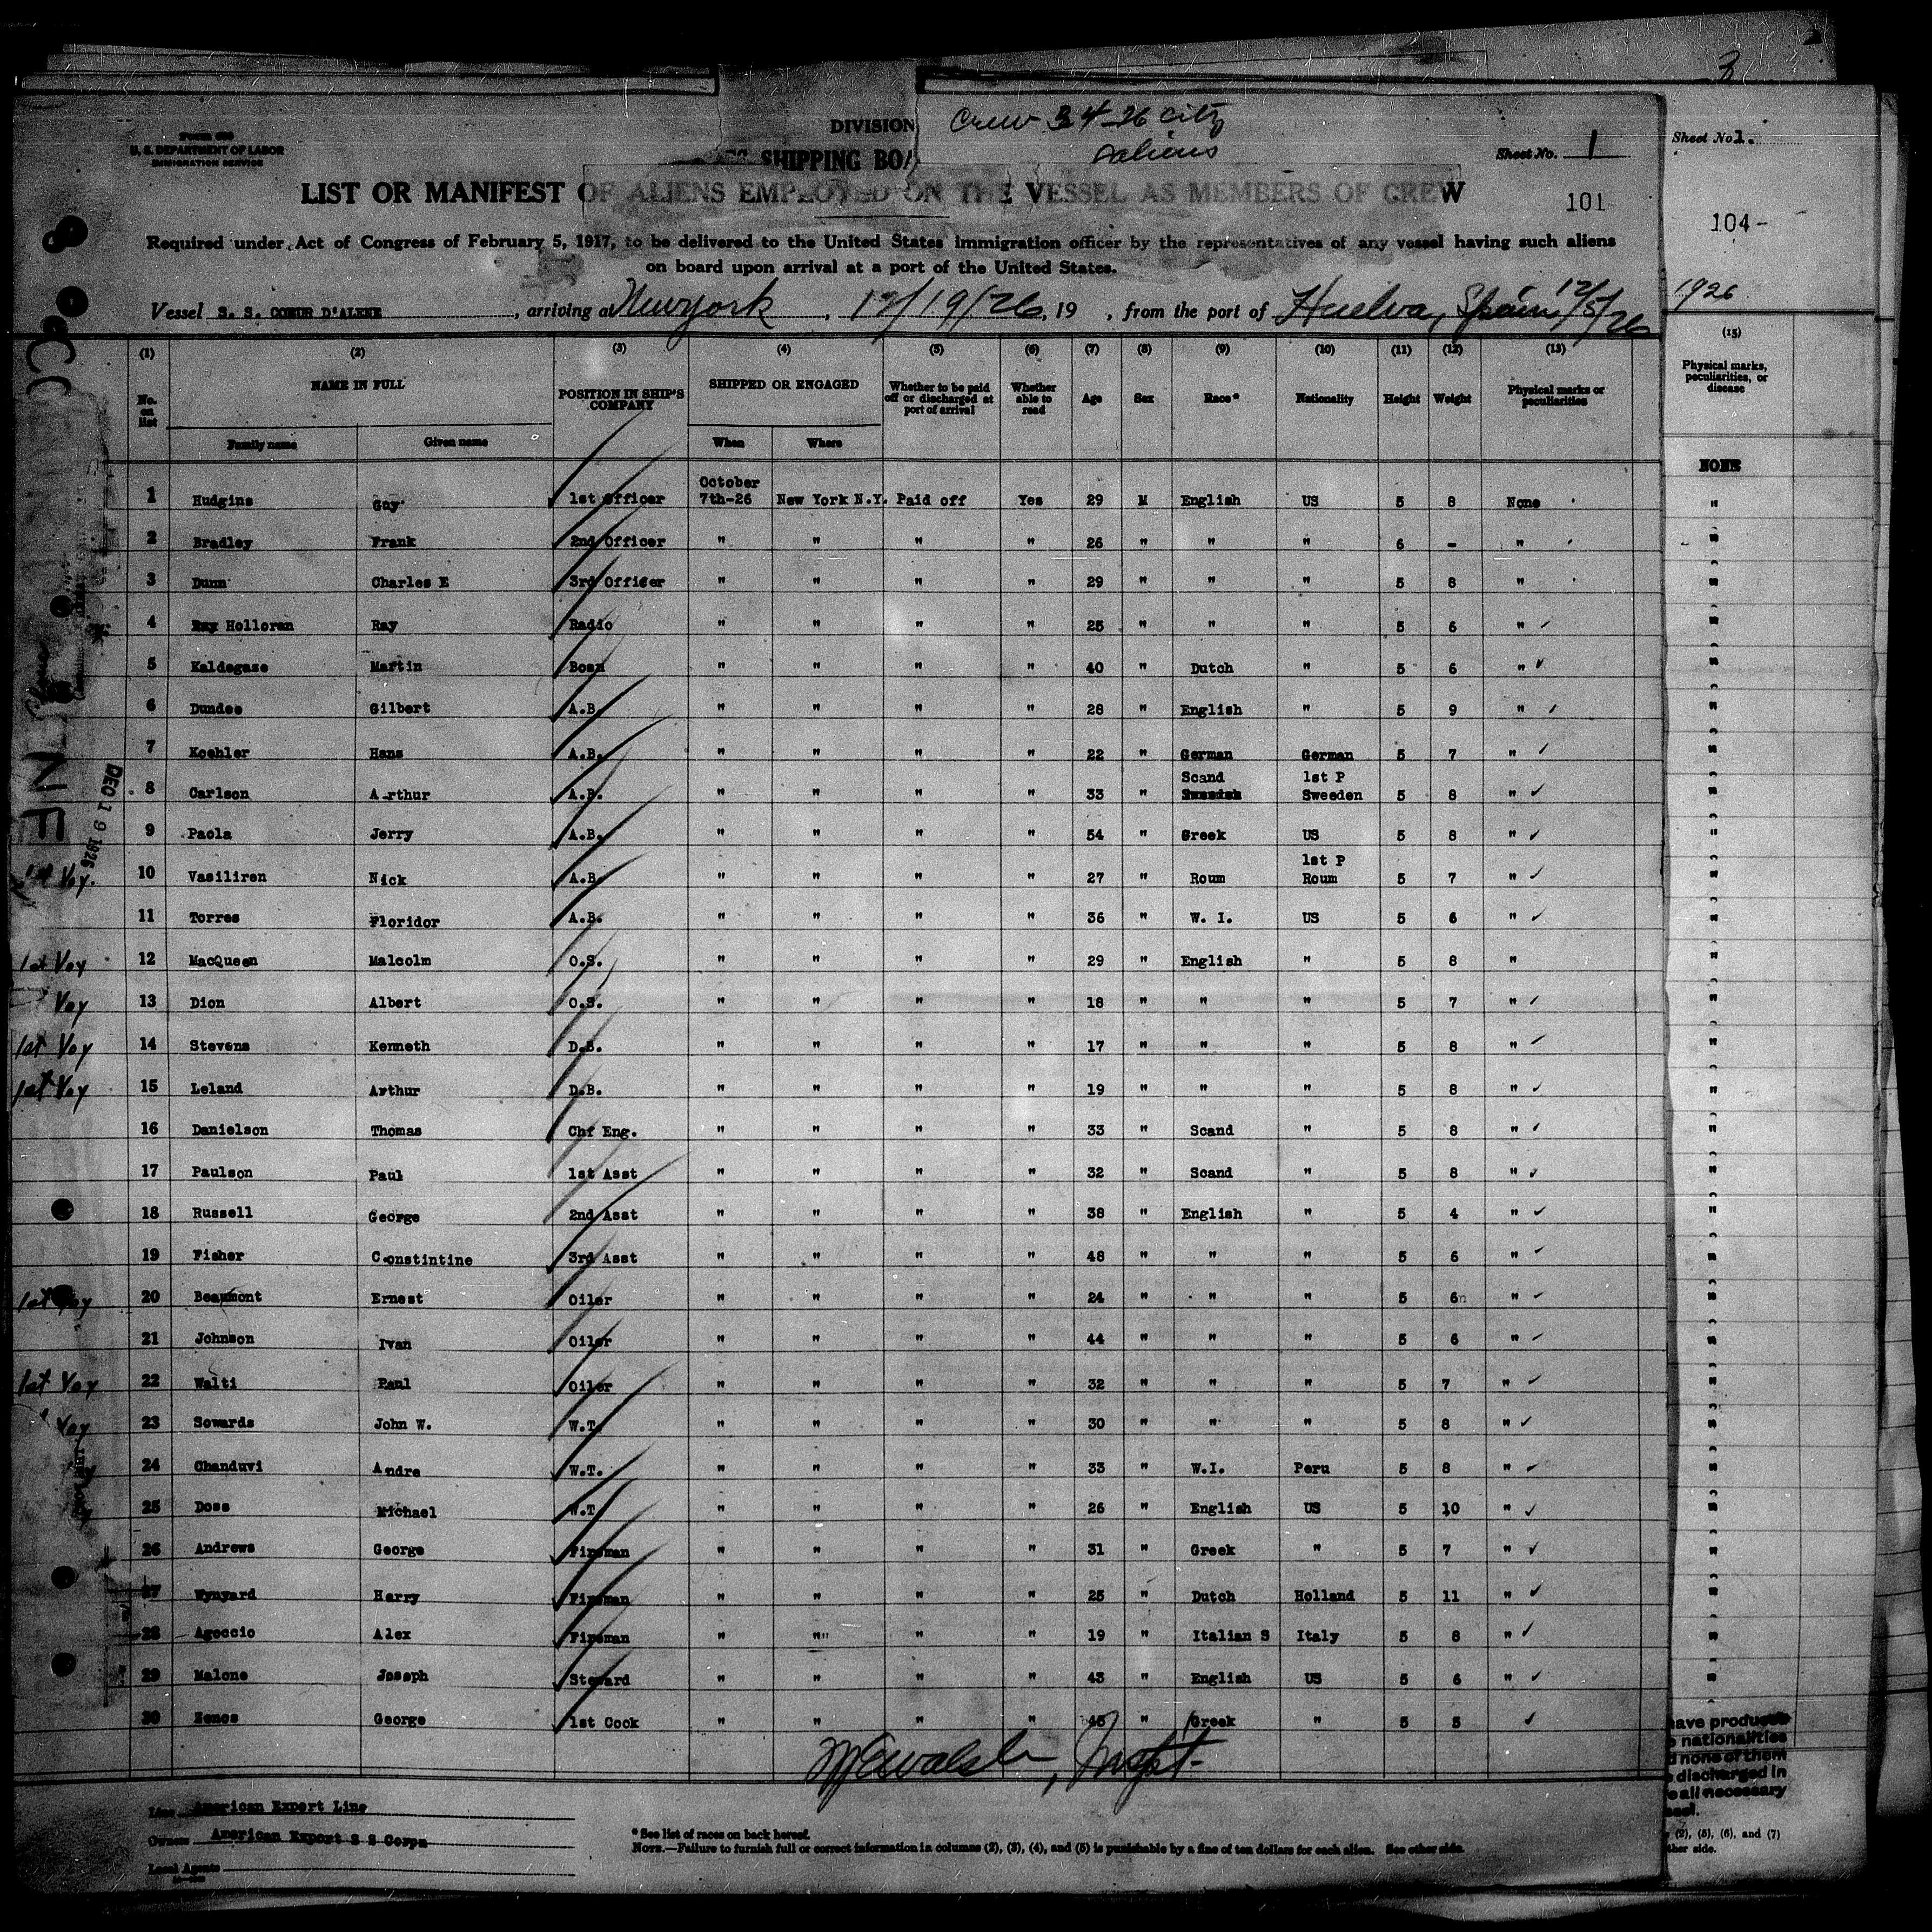 3
Form 680
U. S. DEPARTMENT OF LABOR
IMMIGRATION SERVICE
DIVISION
SHIPPING BO
Crew 34-26 City
aliens
Sheet No. 1
Sheet No. 1.
LIST OR MANIFEST OF ALIENS EMPLOYED ON THE VESSEL AS MEMBERS OF CREW
101
104-
Required under Act of Congress of February 5, 1917, to be delivered to the United States immigration officer by the representatives of any vessel having such aliens
on board upon arrival at a port of the United States.
Vessel S. S. COEUR D'ALENE, arriving at New York, 12/19/26, 19 , from the port of Huelva, Spain 12/5/26
1926
(1) (2) (3) (4) (5) (6) (7) (8) (9) (10) (11) (12) (13) (15)
No. on list NAME IN FULL POSITION IN SHIP'S COMPANY SHIPPED OR ENGAGED Whether to be paid off or discharged at port of arrival Whether able to read Age Sex Race* Nationality Height Weight Physical marks or peculiarities Physical marks, peculiarities, or disease
Family name Given name When Where
1 Hudgins Guy 1st Officer October 7th-26 New York N.Y. Paid off Yes 29 M English US 5 8 None NONE
2 Bradley Frank 2nd Officer " " " " 26 " " " 6 - " "
3 Dunn Charles E 3rd Officer " " " " 29 " " " 5 8 " "
4 Holloran Ray Radio " " " " 25 " " " 5 6 " "
5 Kaldegase Martin Bosn " " " " 40 " Dutch " 5 6 " "
6 Dundee Gilbert A.B. " " " " 28 " English " 5 9 " "
7 Koehler Hans A.B. " " " " 22 " German German 5 7 " "
8 Carlson Arthur A.B. " " " " 33 " Scand Swedish 1st P Sweeden 5 8 " "
9 Paola Jerry A.B. " " " " 54 " Greek US 5 8 " "
1st Voy. 10 Vasiliren Nick A.B. " " " " 27 " Roum 1st P Roum 5 7 " "
11 Torres Floridor A.B. " " " " 36 " W. I. US 5 6 " "
1st Voy 12 MacQueen Malcolm O.S. " " " " 29 " English " 5 8 " "
Voy 13 Dion Albert O.S. " " " " 18 " " " 5 7 " "
1st Voy 14 Stevens Kenneth D.B. " " " " 17 " " " 5 8 " "
1st Voy 15 Leland Arthur D.B. " " " " 19 " " " 5 8 " "
16 Danielson Thomas Chf Eng. " " " " 33 " Scand " 5 8 " "
17 Paulson Paul 1st Asst " " " " 32 " Scand " 5 8 " "
18 Russell George 2nd Asst " " " " 38 " English " 5 4 " "
19 Fisher Constintine 3rd Asst " " " " 48 " " " 5 6 " "
1st Voy 20 Beaumont Ernest Oiler " " " " 24 " " " 5 6 " "
21 Johnson Ivan Oiler " " " " 44 " " " 5 6 " "
1st Voy 22 Walti Paul Oiler " " " " 32 " " " 5 7 " "
Voy 23 Sowards John W. W.T. " " " " 30 " " " 5 8 " "
24 Chanduvi Andre W.T. " " " " 33 " W.I. Peru 5 8 " "
25 Doss Michael W.T " " " " 26 " English US 5 10 " "
26 Andrews George Fireman " " " " 31 " Greek " 5 7 " "
27 Wynyard Harry Fireman " " " " 25 " Dutch Holland 5 11 " "
28 Agoccio Alex Fireman " " " " 19 " Italian S Italy 5 8 " "
29 Malone Joseph Steward " " " " 43 " English US 5 6 " "
30 Xenos George 1st Cook " " " " 45 " Greek " 5 5
DEC 19 1926
Inspt.
have produced
nationalities
d none of them
discharged in
e all necessary
Line American Export Line
Owners American Export S S Corpn
Local Agents
* See list of races on back hereof.
NOTE.—Failure to furnish full or correct information in columns (2), (3), (4), and (5) is punishable by a fine of ten dollars for each alien. See other side.
(2), (5), (6), and (7)
ther side.